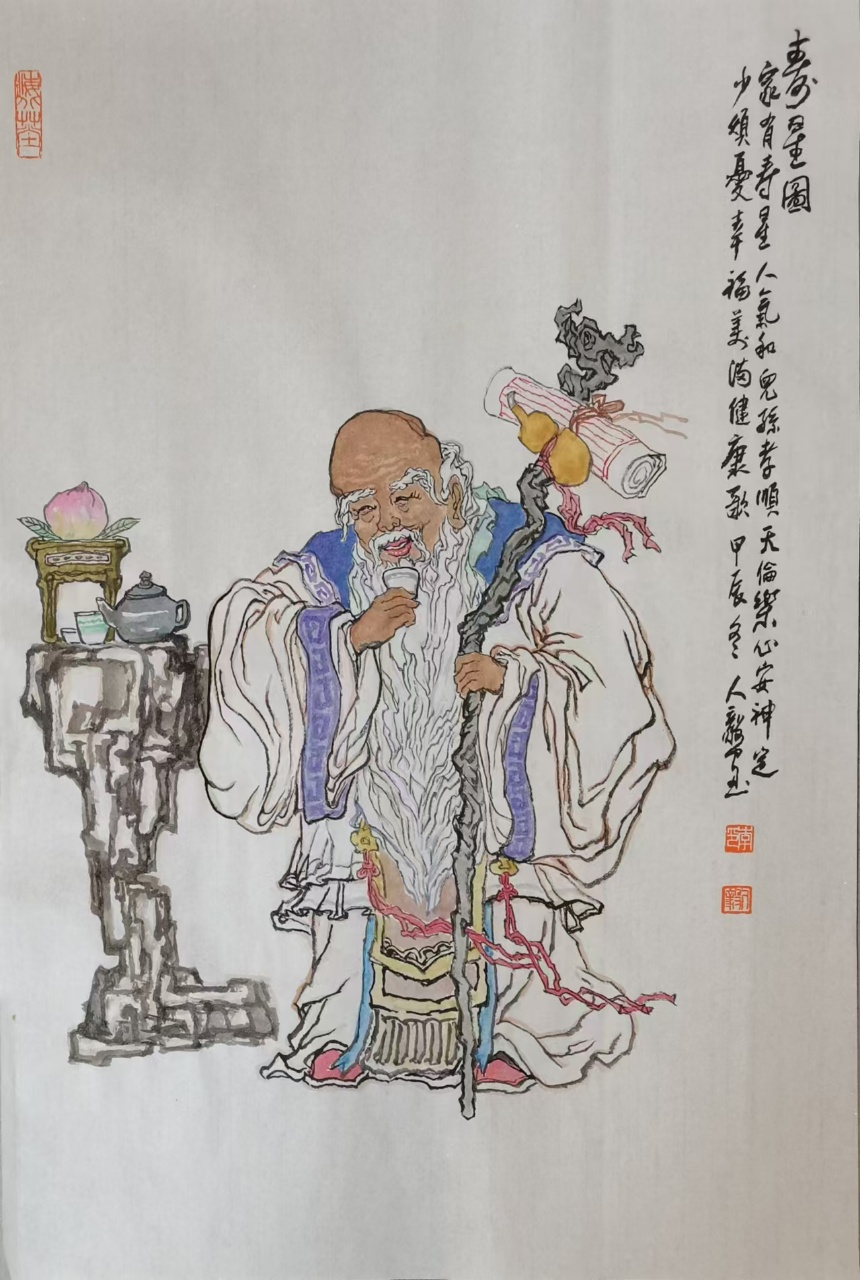 寿星圖
家有寿星人氣和兒孫孝順天倫樂心安神定
少煩憂幸福美滿健康歌甲辰冬人毅写